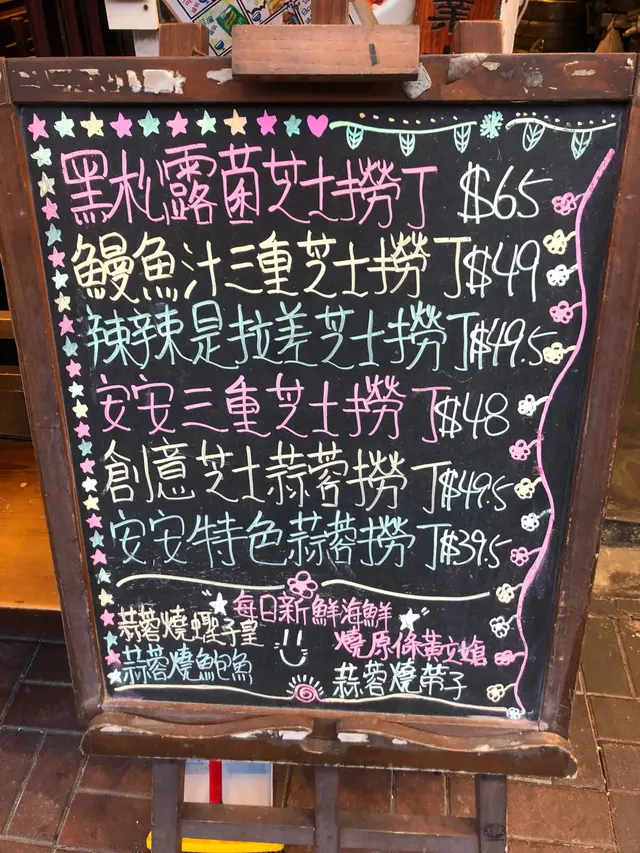 黑松露菌芝士撈丁 $65
鰻魚汁三重芝士撈丁 $49
辣辣是拉差芝士撈丁 $49.5
安安三重芝士撈丁 $48
創意芝士蒜蓉撈丁 $49.5
安安特色蒜蓉撈丁 $39.5
每日新鮮海鮮
蒜蓉燒蟶子皇
燒原條黃立鱠
蒜蓉燒鮑魚
蒜蓉燒帶子